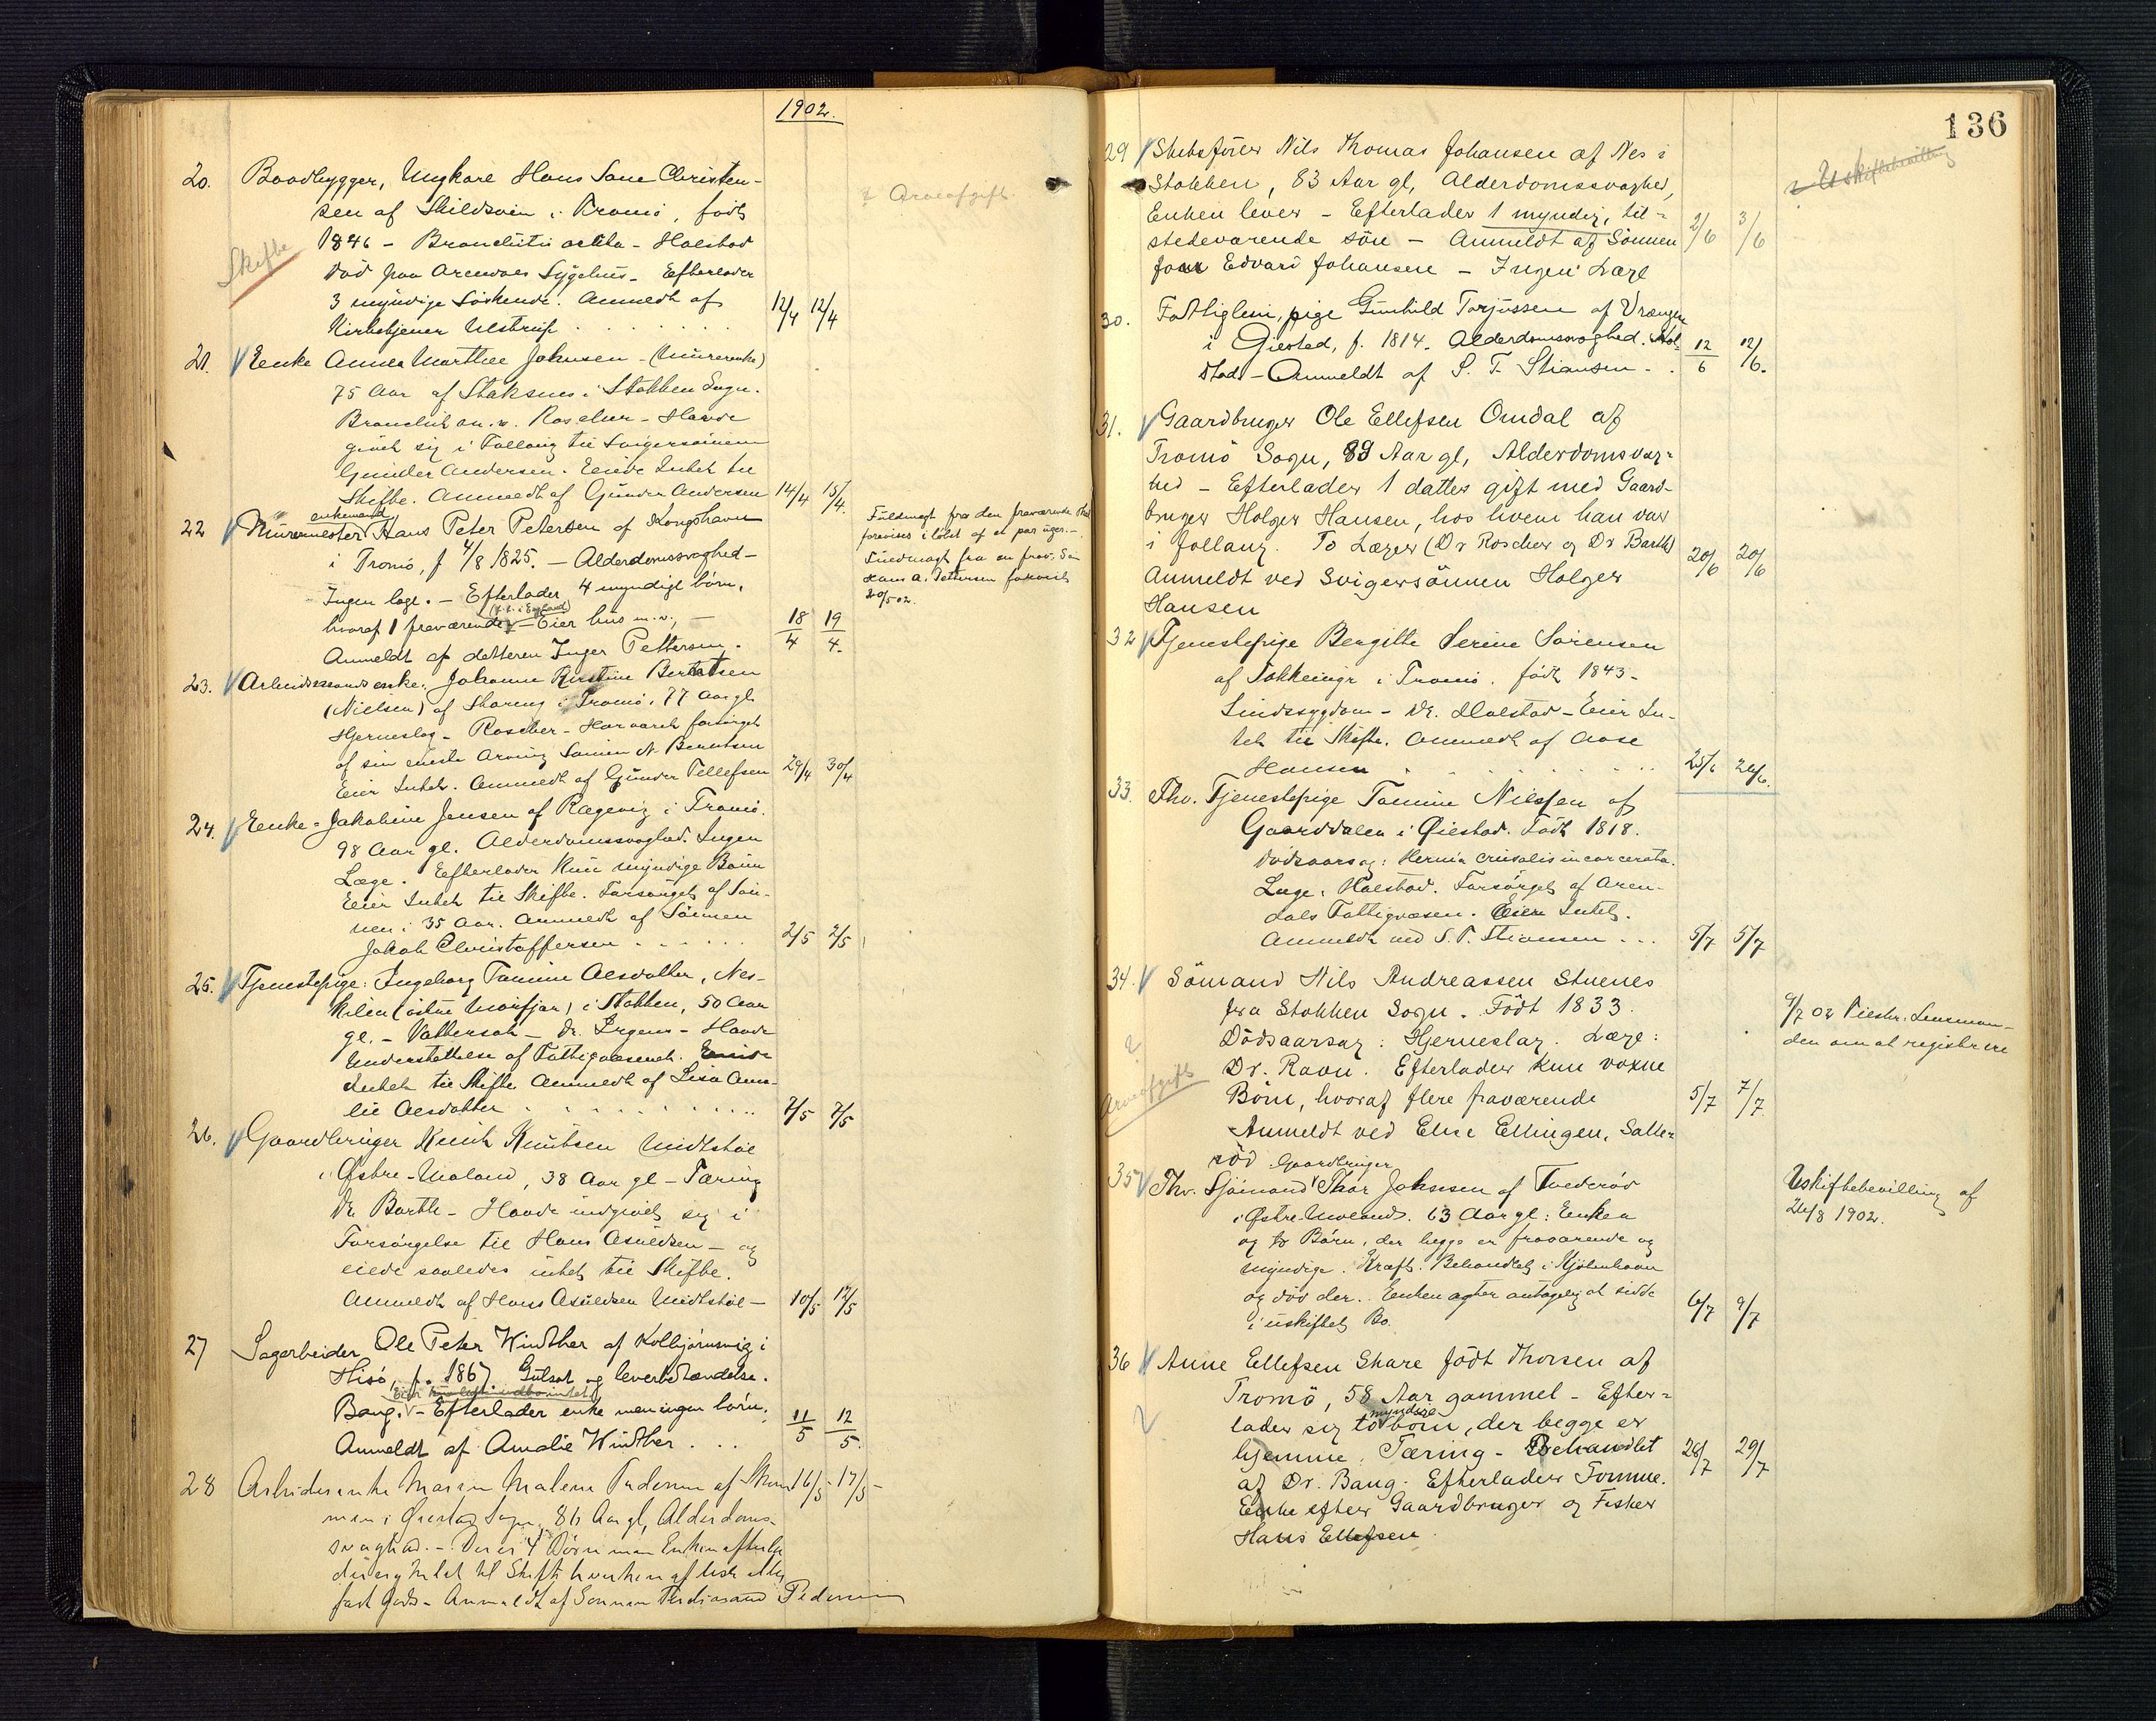 1902.
20. Baadbygger, Ungkarl Hans Sane Christen-
sen af Skildsvin i Tromö, født
1846 - Bronchitis acuta - Holstad
Skifte
død paa Arendals Sygehus. Efterlader
3 myndige Söskende. Anmeldt af
Kirketjener Ulstrup . . . 12/4 12/4
? Arveafgift
21. Enke Anna Marthea Johnsen - (Murerenke)
75 Aar af Staksnes i Stokken Sogn.
Bronchit m.v. Roscher - Havde
givet sig i Follaug til Svigersönnen
Gunder Andersen. Eiede Intet til
Skifte. Anmeldt af Gunder Andersen 14/4 15/4.
22 Murermester enkemand Hans Peter Petersen af Kongshavn
i Tromö, f 4/8 1825. - Alderdomssvaghed -
Ingen læge. - Efterlader 4 myndige börn,
hvoraf 1 fraværende (f.t. i England) - Eier hus m.v., -
Anmeldt af datteren Inger Pettersen. 18/4 19/4.
Fuldmagt fra den fraværende skal
forevises i löbet af et par uger. -
Fuldmagt fra en frav. Sön
Hans A. Pettersen forevist
20/5 02.
23. Arbeidsmands enke, Johanne Kirstine Berntsen
(Nielsen) af Skareng i Tromö. 77 Aar gl.
Hjerneslag - Roscher - Har været forsörget
af sin eneste Arving Sönnen N. Berntsen
Eier Intet. Anmeldt af Gunder Tellefsen 29/4 30/4
24. Enke - Jakobine Jensen af Rægevig i Tromö.
98 Aar gl. Alderdomssvaghed. Ingen
Læge. Efterlader kun myndige Börn
Eier Intet til Skifte. Forsörget af Sön-
nen i 35 Aar. Anmeldt af Sönnen
Jakob Christoffersen . . . 2/5 2/5
25. Tjenestepige: Ingeborg Tomine Olesdatter, Nes-
kilen (östre Morfjær) i Stokken, 50 Aar
gl. - Vattersot - Dr. Irgens - Havde
Understöttelse af Fattigvæsenet. Eiede
Intet til Skifte Anmeldt af Lisa Ama-
lie Olesdatter . . . 7/5 7/5
26. Gaardbruger Knut Knutsen Midtstöl
i Østre-Moland, 38 Aar gl - Tæring
Dr Barth - Havde indgivet sig i
Forsörgelse til Hans Asuldsen - og
eiede saaledes intet til Skifte.
Anmeldt af Hans Asuldsen Midtstöl - 10/5 12/5
27 Sagarbeider Ole Peter Winther af Kolbjörnsvig i
Hisö, f. 1867. Gulsot og leverbetændelse.
Bang. - Efterlader enke men ingen börn.
Anmeldt af Amalie Winther . . . 11/5 12/5.
28 Arbeiderenke Maren Malene Pedersen af 16/5 - 17/5 -
i Öiestad Sogn, 86 Aar gl, Alderdoms-
svaghed. - Der er 4 Börn men Enken efterla-
der sig Intet til Skifte hverken af löst eller
fast Gods - Anmeldt af Sönnen Ferdinand Pedersen
136
29 Skibsförer Nils Thomas Johansen af Nes i
Stokken, 83 Aar gl, Alderdomssvaghed,
Enken lever - Efterlader 1 myndig, til-
stedeværende sön - Anmeldt af Sönnen 2/6 3/6
Edvard Johansen - Ingen Læge
? Uskiftebevilling
30. Fattiglem, pige Gunhild Torjussen af Vrængen
i Öiestad, f. 1814. Alderdomssvaghed. Hol-
stad - Anmeldt af S. T. Stiansen - . 12/6 12/6.
31. Gaardbruger Ole Ellefsen Omdal af
Tromö Sogn, 89 Aar gl, Alderdomsvag-
hed - Efterlader 1 datter gift med Gaard-
bruger Holger Hansen, hos hvem han var
i follaug. To Læger (Dr Roscher og Dr Barth) 20/6 20/6
Anmeldt ved Svigersönnen Holger
Hansen
32 Tjenestepige Bergitte Serine Sörensen
af Tokkeinga i Tromö. født 1843 -
Sindssygdom - Dr. Holstad - Eier In-
tet til Skifte. Anmeldt af Aase
Hansen . . . 25/6 26/6.
33. Fhv. Tjenestepige Tomine Nielsen af
Gaarddalen i Öiestad. Født 1818.
Dödsaarsag: Hernia cruralis incarcerata.
Læge: Holstad. Forsörget af Aren-
dals Fattigvæsen. Eier Intet.
Anmeldt ved S. T. Stiansen . . . 5/7 5/7
34. Sömand Nils Andreassen Stuenes
fra Stokken Sogn. Född 1833.
Dödsaarsag: Hjerneslag. Læge:
Dr. Ravn. Efterlader kun voxne
Börn, hvoraf flere fraværende 5/7 7/7
Anmeldt ved Elise Ellingsen, Salte-
röd
? Arveafgift
9/7 02 Tilskr. Lensman-
den om at registrere
35 Fhv. Sjömand Gaardbruger Thor Johnsen af Tvederöd
i Østre-Moland. 63 Aar gl: Enken
og to Börn, der begge er fraværende og
myndige. Kræft. Behandlet i Kjöbenhavn
og död der. Enken agter antagelig at sidde
i uskiftet Bo. 6/7 9/7
Uskiftebevilling af
26/8 1902.
36 Anne Ellefsen Skare född Thorsen af
Tromö, 58 Aar gammel - Efter-
lader sig to myndige börn, der begge er
hjemme. Tæring - Behandlet 28/7 29/7
af Dr. Bang. Efterlader Formue.
Enke efter Gaardbruger og Fisker
Hans Ellefsen.